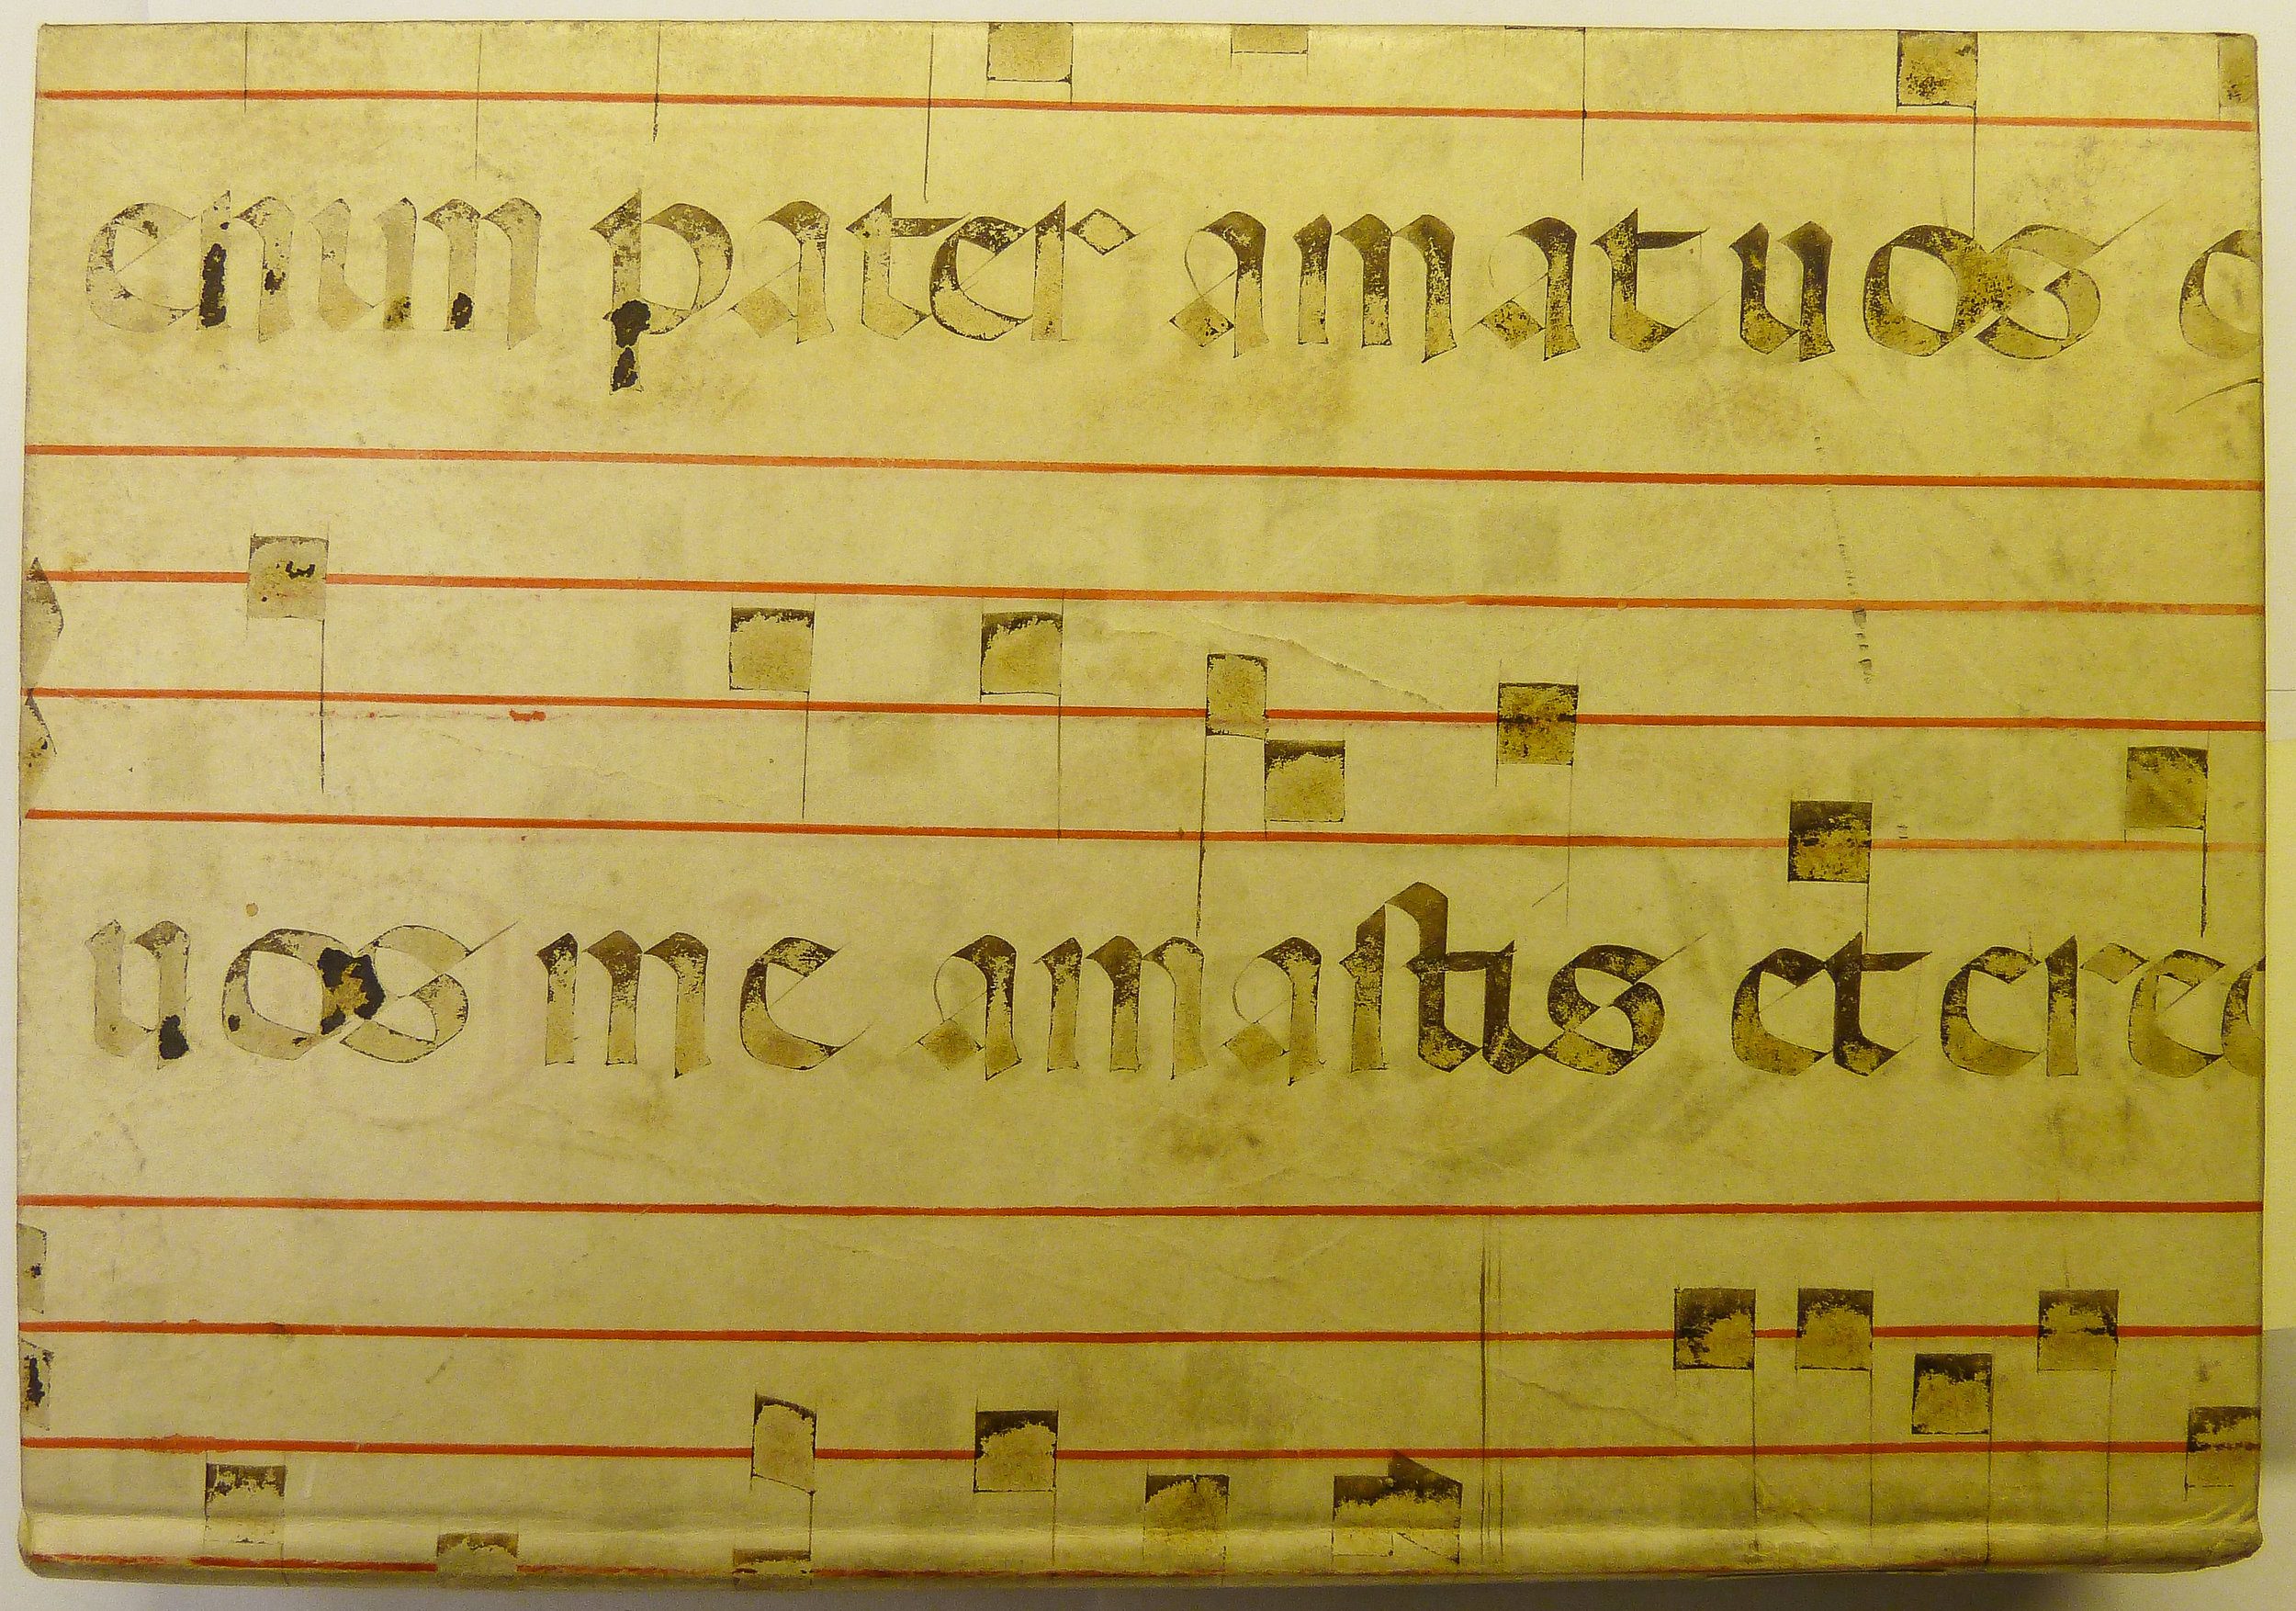 enim pater amat uos
uos me amaſtis et cre